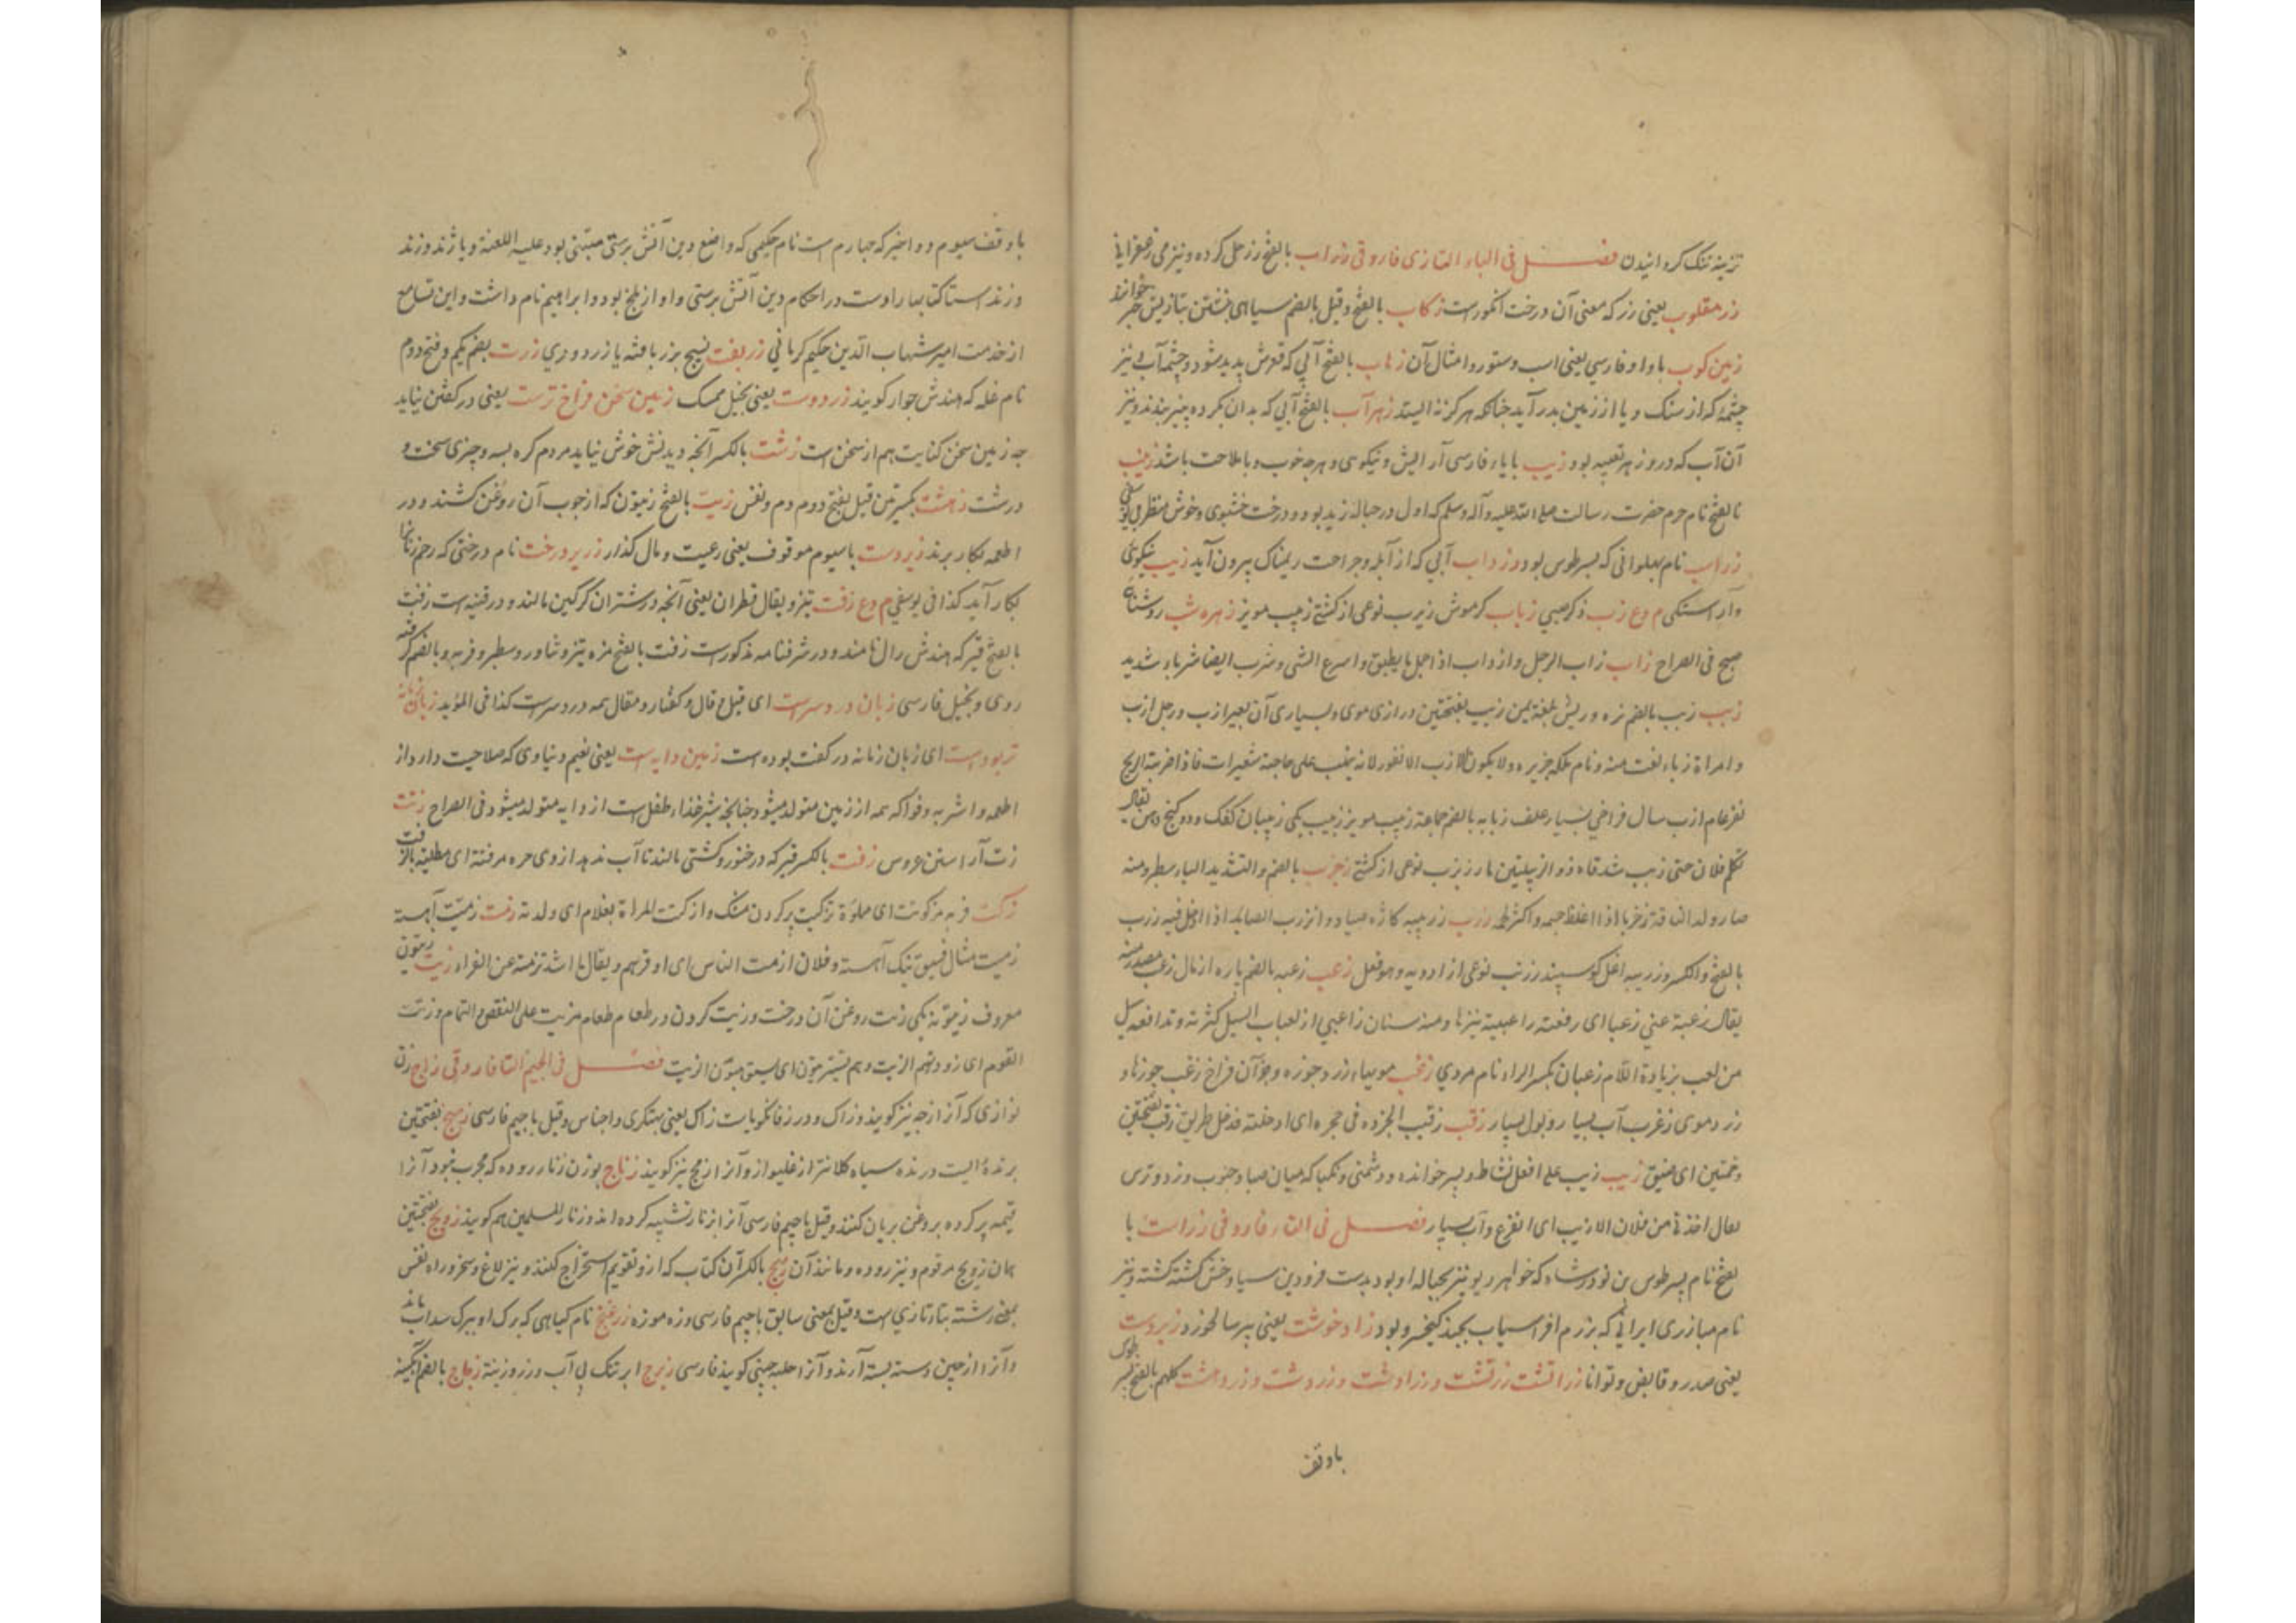 تزینه تنک کردانیدن فصل فی الباء التازی فارو فی زراب بالفتح زر حل کرده و نیز می زعفرانی
زر مقلوب یعنی رز که معنی آن درخت انکورست زکاب بالفتح و قیل بالضم سیاهی نبشتن بتازیش حبر خوانند
زمین کوب باواو فارسی یعنی اسب و ستور و امثال آن زهاب بالفتح آبی که قعرش پدید نشود و چشمه آب نیز
چشمهٔ که از سنک و یا از زمین بدر آید چنانکه هرکز نه ایستد زهرآب بالفتح آبی که بدان کرده پنیر بندند و نیز
آن آب که درو زهر تعبیه بود زیب بایاء فارسی آرایش و نیکوی و هرچه خوب و با ملاحت باشد زینب
بالفتح نام حرم حضرت رسالت صلی الله علیه و آله وسلم که اول در حباله زید بود و درخت خشبوی و خوش منظر
زراسب نام پهلوانی که پسر طوس بود و زرداب آبی که از آبله و جراحت ریمناک بیرون آید زیب نیکوئی
و آراستکی م و ع زب ذکر صبی زباب کرموش زبرب نوعی از کشتی زبیب مویز زهره شب روشنای
صبح فی الصراح زاب زاب الرجل وازداب اذا حمل ما یطیق و اسرع المشی و شرب ایضا شربا شدید
زبب زبب بالضم نره و ریش بلغة یمن زبب بفتحتین درازی موی و بسیاری آن بعیر ازب و رجل ازب
و امراة زباء نعت منه و نام ملکه جزیره و لا یکون الازب الا نفور لانه ینبت علی حاجبه شعیرات فاذا ضربته الریح
نفر عام ازب سال فراخی بسیار علف زبابه بالضم جماعة زبیب مویز زبیب یکی زبیبان کفک دو کنج دهن یقال
تکلم فلان حتی زبب شدقاه ذو الزبیبتین مار زبزب نوعی از کشتی زخزب بالضم و التشدید الباء سطبر و منه
صار ولد الناقة زخزبا اذا غلظ جسمه و اکثر لحمه زرب زریبه کازه صیاد و انزرب الصاید اذا دخل فیه زرب
بالفتح و الکسر و زریبه آغل کوسپند زرنب نوعی از ادویه و هو فعلل زعب زعبه بالضم پاره از مال زعب مصدر منه
یقال زعبة عنی زعبا ای دفعته زاعبیه نیزها و منه سنان زاعبی ازلعباب السیل کثرته و تدافعه سیل
من لعب بزیادة اللام زعبان بکسر الراء نام مردی زغب مویهاء زرد جوزه و جز آن فراخ زغب جوزها و
زرد موی زغرب آب بسیار و بول بسیار زقب زقبت الجرذ فی حجره ای ادخلته فدخل طریق زقب بفتحتین
و ضمتین ای ضیق زیب زیب علی افعل نشاط و پسر خوانده و دشمنی و نکبا که میان صبا و جنوب وزد و ترس
یقال اخذ نی من فلان الازیب ای الفزع و آب بسیار فصل فی التاء فارو فی زراست با
لفتح نام پسر طوس بن نوذر شاه که خواهر ریونیز بحباله او بود بدست فرود بن سیاوخش کشته کشته و نیز
نام مبارزی ایرانی که بزرم افراسیاب بجنک کیخسرو بود زاد خوشت یعنی پیر سالخورد زبردست
یعنی صدر و قابض و توانا زراتشت زرتشت و زراوشت و زردوشت و زردهشت کلهم بالفتح
باوقف
باوقف سیوم و دو اخیر که چهارم است نام حکیمی که واضع دین آتش پرستی متنبی بود علیه اللعنة و پاژند و زند
و زند استا کتابها راوست در احکام دین آتش پرستی و او از بلخ بود و ابراهیم نام داشت و این تسامع
از خدمت امیر شهاب الدین حکیم کرمانی زربفت نسیج بزر بافته یا زردوزی زرت بضم یکم و فتح دوم
نام غله که هندش جوار کویند زردوست یعنی بخیل ممسک زمین سخن فراخ ترست یعنی در کفتن نیاید
چه زمین سخن کنایت هم از سخن است زشت بالکسر آنچه دیدنش خوش نیاید مردم کره بسه و چیزی سخت و
درشت زهشت بکسرتین قیل بفتح دوم دم و نفس زیت بالفتح زیتون که از جوب آن روغن کشند و در
اطعمه بکار برند زیردست باسیوم موقوف یعنی رعیت و مال کذار زریر درخت نام درختی که رحم زنانرا
بکار آید کذا فی یوسفی م و ع زفت تیز و یقال قطران یعنی آنچه در شتران کرکین مالند و در قنیه است زفت
بالفتح قیر که هندش رال نامند و در شرفنامه مذکورست زفت بالفتح مزه تیز و شاور و سطبر و فربه و بالضم کرفته
روی و بخیل فارسی زبان دردسرست ای قیل و قال و کفتار و مقال همه دردسرست کذا فی المؤید زبان زنانه
تر بوده است ای زبان زنانه در کفت بوده است زمین دایه است یعنی نعیم دنیاوی که صلاحیت دارد از
اطعمه و اشربه و فواکه همه از زمین متولد میشود چنانچه شیر غذاء طفل است از دایه متولد میشود فی الصراح زتت
زتت آراستن عروس زفت بالکسر قیر که در خنور و کشتی مالند تا آب ندهد از وی جره مزفتة ای مطلیه بالزفت
زکت فربه مزکوتت ای مملوة تزکیت پر کردن مشک و ازکتت المراة بغلام ای ولدته زمت زمیت آهسته
زمیت مثال فسیق نیک آهسته و فلان ازمت الناس ای اوقرهم و یقال ما اشد تزمته عن الفراء زیت زیتون
معروف زیتونه یکی زیت روغن آن درخت و زیت کردن در طعام طعام مزیت علی النقص و التمام و زتت
القوم ای زودتهم الزیت و هم یستزیتون ای یستوهبون الزیت فصل فی الجیم التا فارو فی زاج زن
نوزادی که آنرا زچه نیز کویند و زاک و در زفانکویاست زاک یعنی پتکری و اجناس و قیل با جیم فارسی زمج بفتحتین
پرندهٔ ایست درنده سیاه کلانتر از غلیواز و آنرا زمج نیز کویند زناج بوزن زنار روده که مجرب نبود آنرا
قیمه پر کرده بروغن بریان کنند و قیل با جیم فارسی آنرا بزنار تشبیه کرده اند و زنار المسلمین هم کویند زویج بفتحتین
همان زویج مرقوم و نیز روده و مانند آن زیج بالکسر آن کتاب که ازو تقویم استخراج کنند و نیز لاغ و سخر و راه نفس
بمعنی رشته بنا تازی است و قیل بمعنی سابق با جیم فارسی و زه موزه زرغنج نام کیاهی که برک او ببرک سداب ماند
و آنرا از چین دسته بسته آرند و آنرا حلبه چینی کویند فارسی زبرج ابر تنک بی آب و زر و زینة زجاج بالضم آبکینه